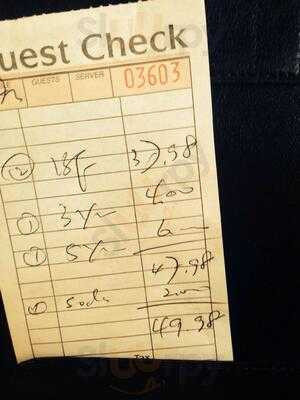 uest Check
GUESTS SERVER 03603
② 37.98
① 3 Yr 4.00
① 5 Yr 6
47.98
soda 2.00
49.98
TAX